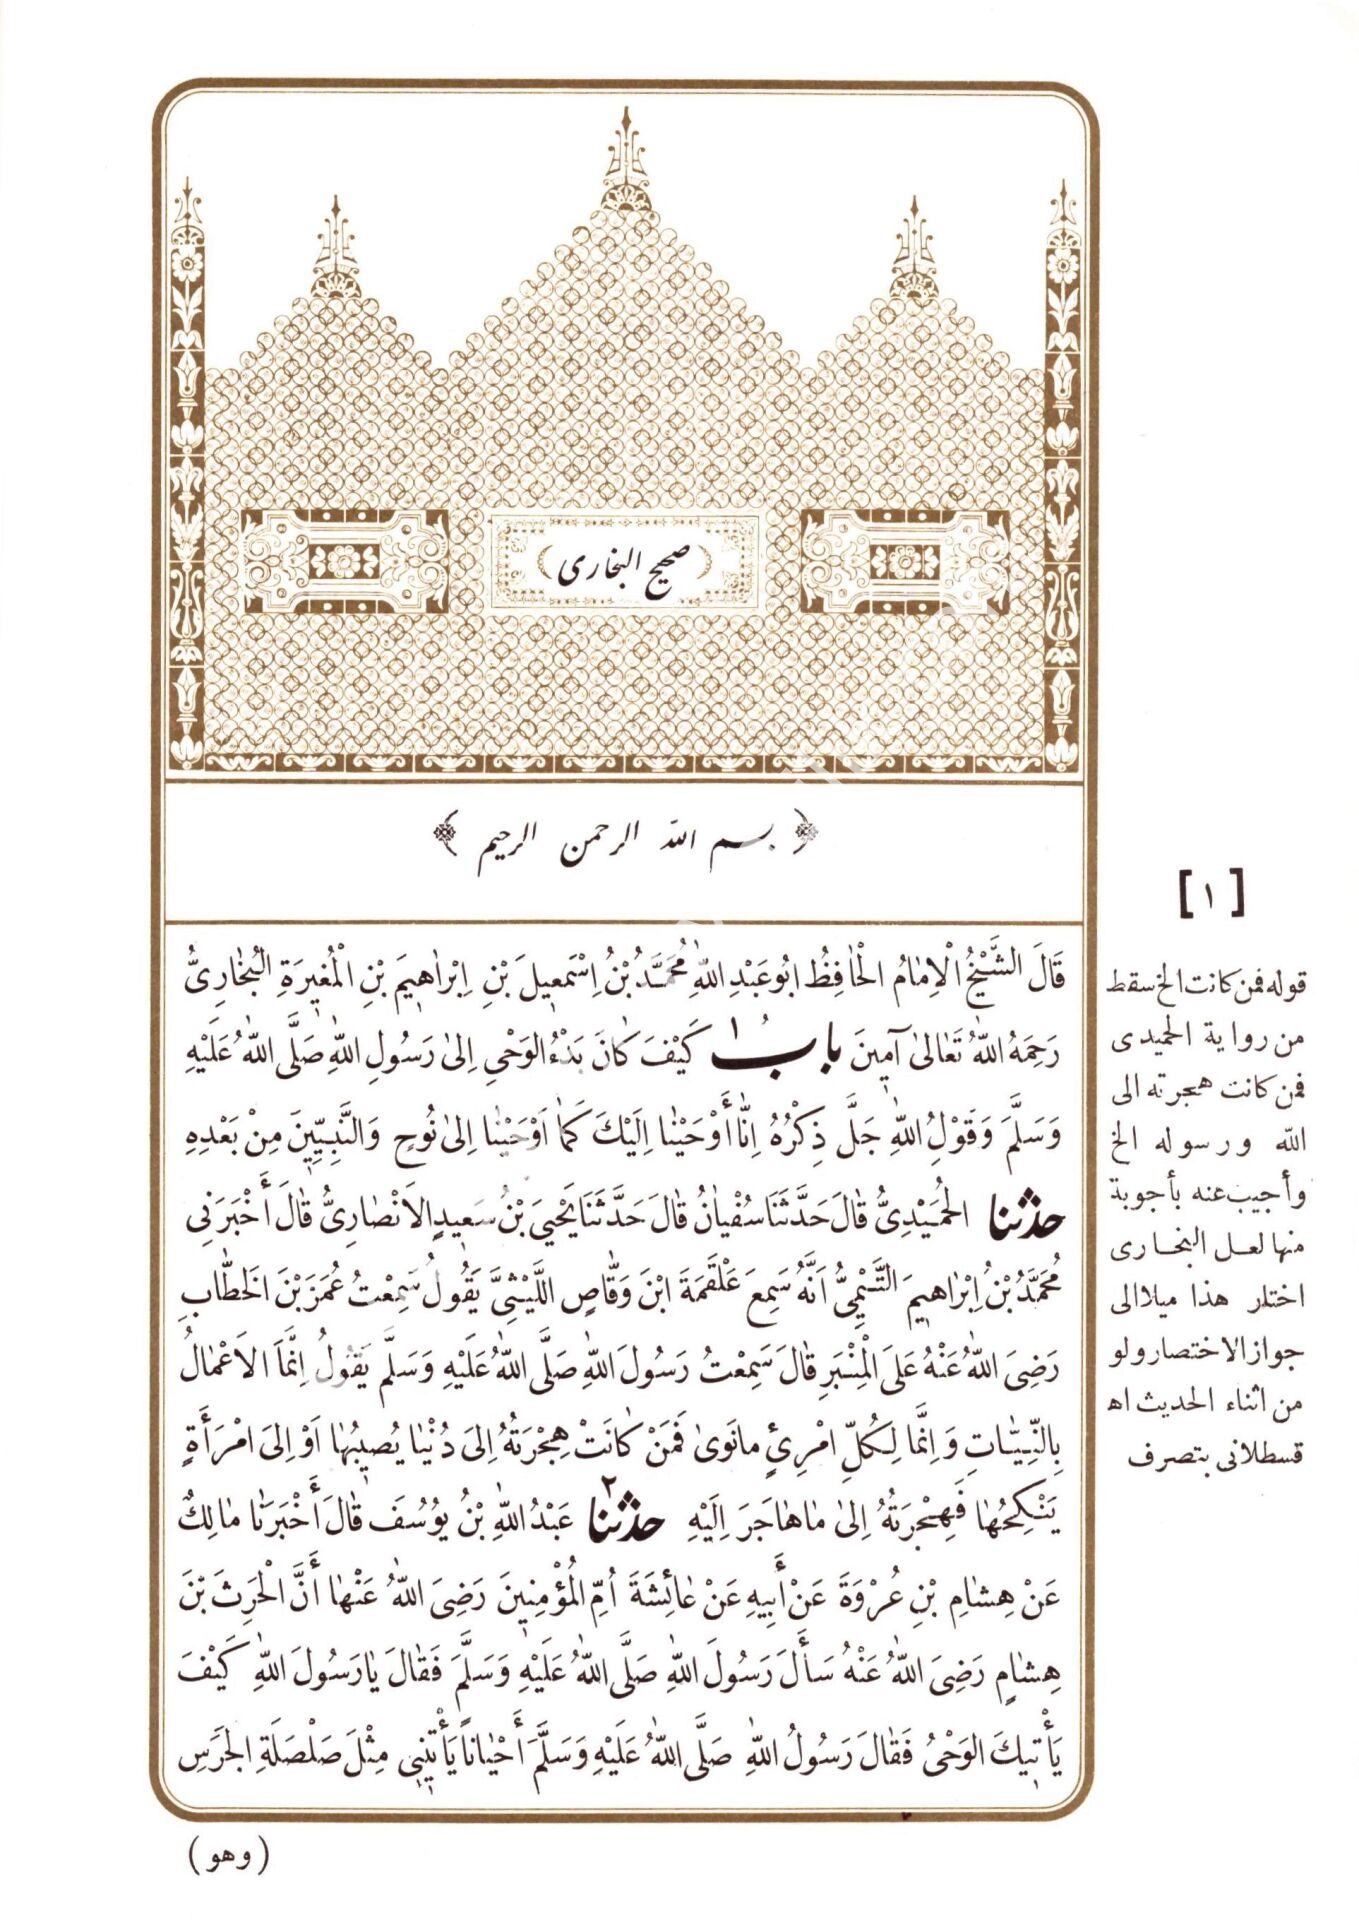 ﴿ صحيح البخارى ﴾
﴿ بسم الله الرحمن الرحيم ﴾
قَالَ الشَّيْخُ الْاِمَامُ الْحَافِظُ اَبُو عَبْدِ اللهِ مُحَمَّدُ بْنُ اِسْمٰعِيلَ بْنِ اِبْرَاهِيمَ بْنِ الْمُغِيرَةِ الْبُخَارِىُّ
رَحِمَهُ اللهُ تَعَالىٰ آمِينَ بابُ ١ كَيْفَ كَانَ بَدْءُ الوَحْىِ اِلىٰ رَسُولِ اللهِ صَلَّى اللهُ عَلَيْهِ
وَسَلَّمَ وَقَوْلِ اللهِ جَلَّ ذِكْرُهُ اِنَّا أَوْحَيْنَا اِلَيْكَ كَمَا اَوْحَيْنَا اِلىٰ نُوحٍ وَالنَّبِيِّينَ مِنْ بَعْدِهِ
حدثنا الحُمَيْدِىُّ قَالَ حَدَّثَنَا سُفْيَانُ قَالَ حَدَّثَنَا يَحْيىَ بْنُ سَعِيدٍ الاَنْصَارِىُّ قَالَ أَخْبَرَنِى
مُحَمَّدُ بْنُ اِبْرَاهِيمَ التَّيْمِىُّ اَنَّهُ سَمِعَ عَلْقَمَةَ ابْنَ وَقَّاصٍ اللَّيْثِىَّ يَقُولُ سَمِعْتُ عُمَرَ بْنَ الخَطَّابِ
رَضِىَ اللهُ عَنْهُ عَلَى الْمِنْبَرِ قَالَ سَمِعْتُ رَسُولَ اللهِ صَلَّى اللهُ عَلَيْهِ وَسَلَّمَ يَقُولُ اِنَّمَا الاَعْمَالُ
بِالنِّيَّاتِ وَاِنَّمَا لِكُلِّ امْرِئٍ مانَوىٰ فَمَنْ كَانَتْ هِجْرَتُهُ اِلىَ دُنْيَا يُصِيبُهَا اَوْ اِلىَ امْرَأَةٍ
يَنْكِحُهَا فَهِجْرَتُهُ اِلىٰ مَا هَاجَرَ اِلَيْهِ ٢ حدثنا عَبْدُ اللهِ بْنُ يُوسُفَ قَالَ أَخْبَرَنَا مَالِكٌ
عَنْ هِشَامِ بْنِ عُرْوَةَ عَنْ أَبِيهِ عَنْ عَائِشَةَ اُمِّ الْمُؤْمِنِينَ رَضِىَ اللهُ عَنْهَا أَنَّ الْحٰرِثَ بْنَ
هِشَامٍ رَضِىَ اللهُ عَنْهُ سَأَلَ رَسُولَ اللهِ صَلَّى اللهُ عَلَيْهِ وَسَلَّمَ فَقَالَ يَا رَسُولَ اللهِ كَيْفَ
يَأْتِيكَ الوَحْىُ فَقَالَ رَسُولُ اللهِ صَلَّى اللهُ عَلَيْهِ وَسَلَّمَ أَحْيَانًا يَأْتِينِى مِثْلَ صَلْصَلَةِ الجَرَسِ
(وهو)
[١]
قوله فمن كانت الخ سقط
من رواية الحميدى
فمن كانت هجرته الى
الله ورسوله الخ
وأجيب عنه بأجوبة
منها لعل البخارى
اختار هذا ميلا الى
جواز الاختصار ولو
من اثناء الحديث اه
قسطلانى بتصرف